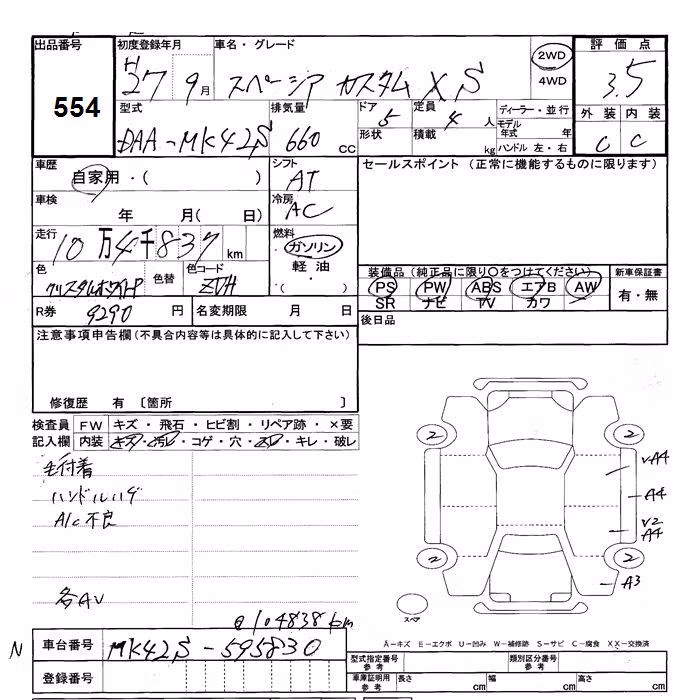 出品番号 初度登録年月 車名・グレード 2WD 評価点
554 H27 9月 スペーシア カスタム XS 4WD 3.5
型式 排気量 ドア 定員 ディーラー・並行 外装 内装
DAA-MK42S 660cc 5 4人 モデル年式 年 C C
形状 積載 kg ハンドル 左・右
車歴 シフト セールスポイント (正常に機能するものに限ります)
自家用・( ) AT
車検 冷房
年 月( 日) AC
走行 燃料
10万4千837km ・ガソリン
色 色替 色コード 軽油
クリスタルホワイトP ZVH ・( )
装備品(純正品に限り○をつけてください) 新車保証書
PS PW ABS エアB AW 有・無
SR ナビ TV カワ
R券 9290円 名変期限 月 日 後日品
注意事項申告欄(不具合内容等は具体的に記入して下さい)
修復歴 有 〔箇所 〕
検査員 FW キズ・飛石・ヒビ割・リペア跡・×要
記入欄 内装 キズ・汚レ・コゲ・穴・スレ・キレ・破レ
毛付着
ハンドルハゲ
A/c不良
各AV
@104838km
2 2
A4
A4
V2
A4
2 2
A3
スペア
A-キズ E-エクボ U-凹み W-補修跡 S-サビ C-腐食 XX-交換済
N 車台番号 MK42S-595830
型式指定番号 参考 類別区分番号 参考
登録番号 車庫証明用 参考 長さ cm 幅 cm 高さ cm